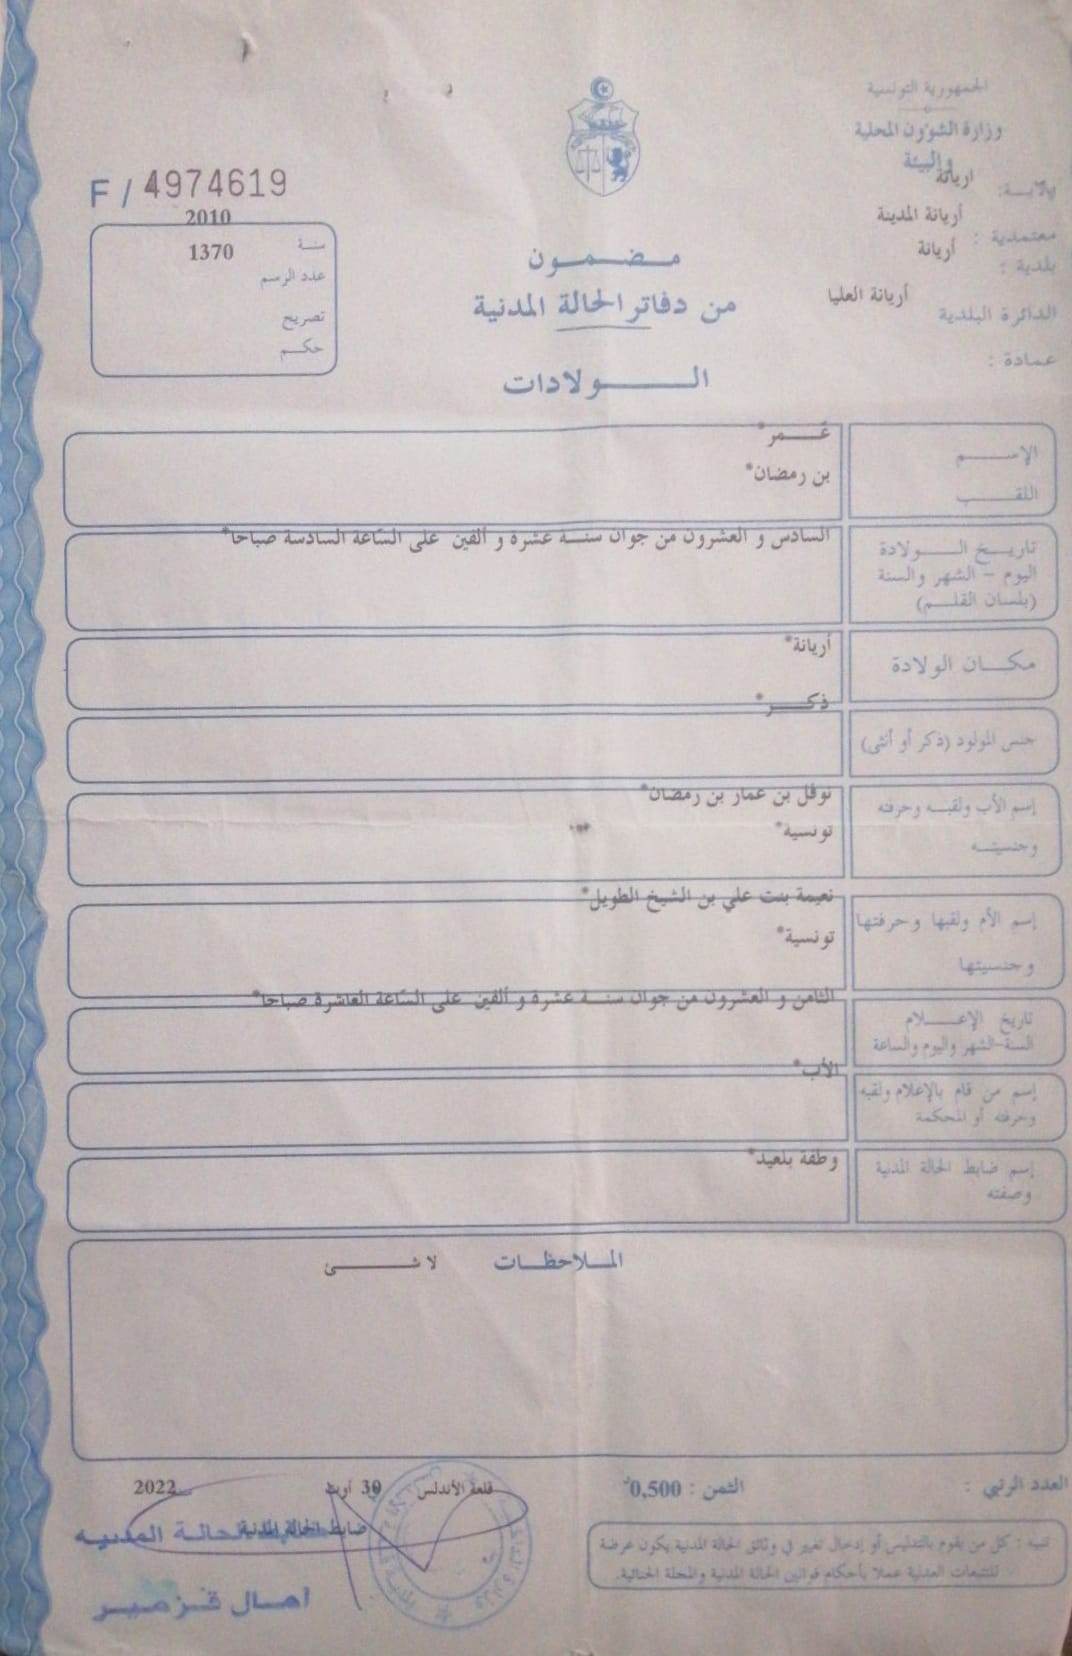 الجمهورية التونسية
وزارة الشؤون المحلية
والبيئة
ولاية: اريانة
معتمدية : أريانة المدينة
بلدية : أريانة
الدائرة البلدية أريانة العليا
عمادة :
F / 4974619
سنة 2010
عدد الرسم 1370
تصريح
حكم
مضمون
من دفاتر الحالة المدنية
الولادات
الإسم عمر*
اللقب بن رمضان*
تاريخ الولادة السادس و العشرون من جوان سنة عشرة و ألفين على الساعة السادسة صباحا*
اليوم – الشهر والسنة
(بلسان القلم)
مكان الولادة أريانة*
جنس المولود (ذكر أو أنثى) ذكر*
إسم الأب ولقبه وحرفته نوفل بن عمار بن رمضان*
وجنسيته تونسية* ***
إسم الأم ولقبها وحرفتها نعيمة بنت علي بن الشيخ الطويل*
وجنسيتها تونسية*
تاريخ الإعلام الثامن و العشرون من جوان سنة عشرة و ألفين على الساعة العاشرة صباحا*
السنة-الشهر واليوم والساعة
إسم من قام بالإعلام ولقبه الأب*
وحرفته أو المحكمة
إسم ضابط الحالة المدنية وطفة بلعيد*
وصفته
الملاحظات لا شئ
العدد الرتبي :
الثمن : 0,500د
قلعة الأندلس 30 أوت 2022
ضابط الحالة المدنية
الحالة المدنية
امال قزمير
تنبيه : كل من يقوم بالتدليس أو إدخال تغيير في وثائق الحالة المدنية يكون عرضة
للتتبعات العدلية عملا بأحكام قوانين الحالة المدنية والمجلة الجنائية.